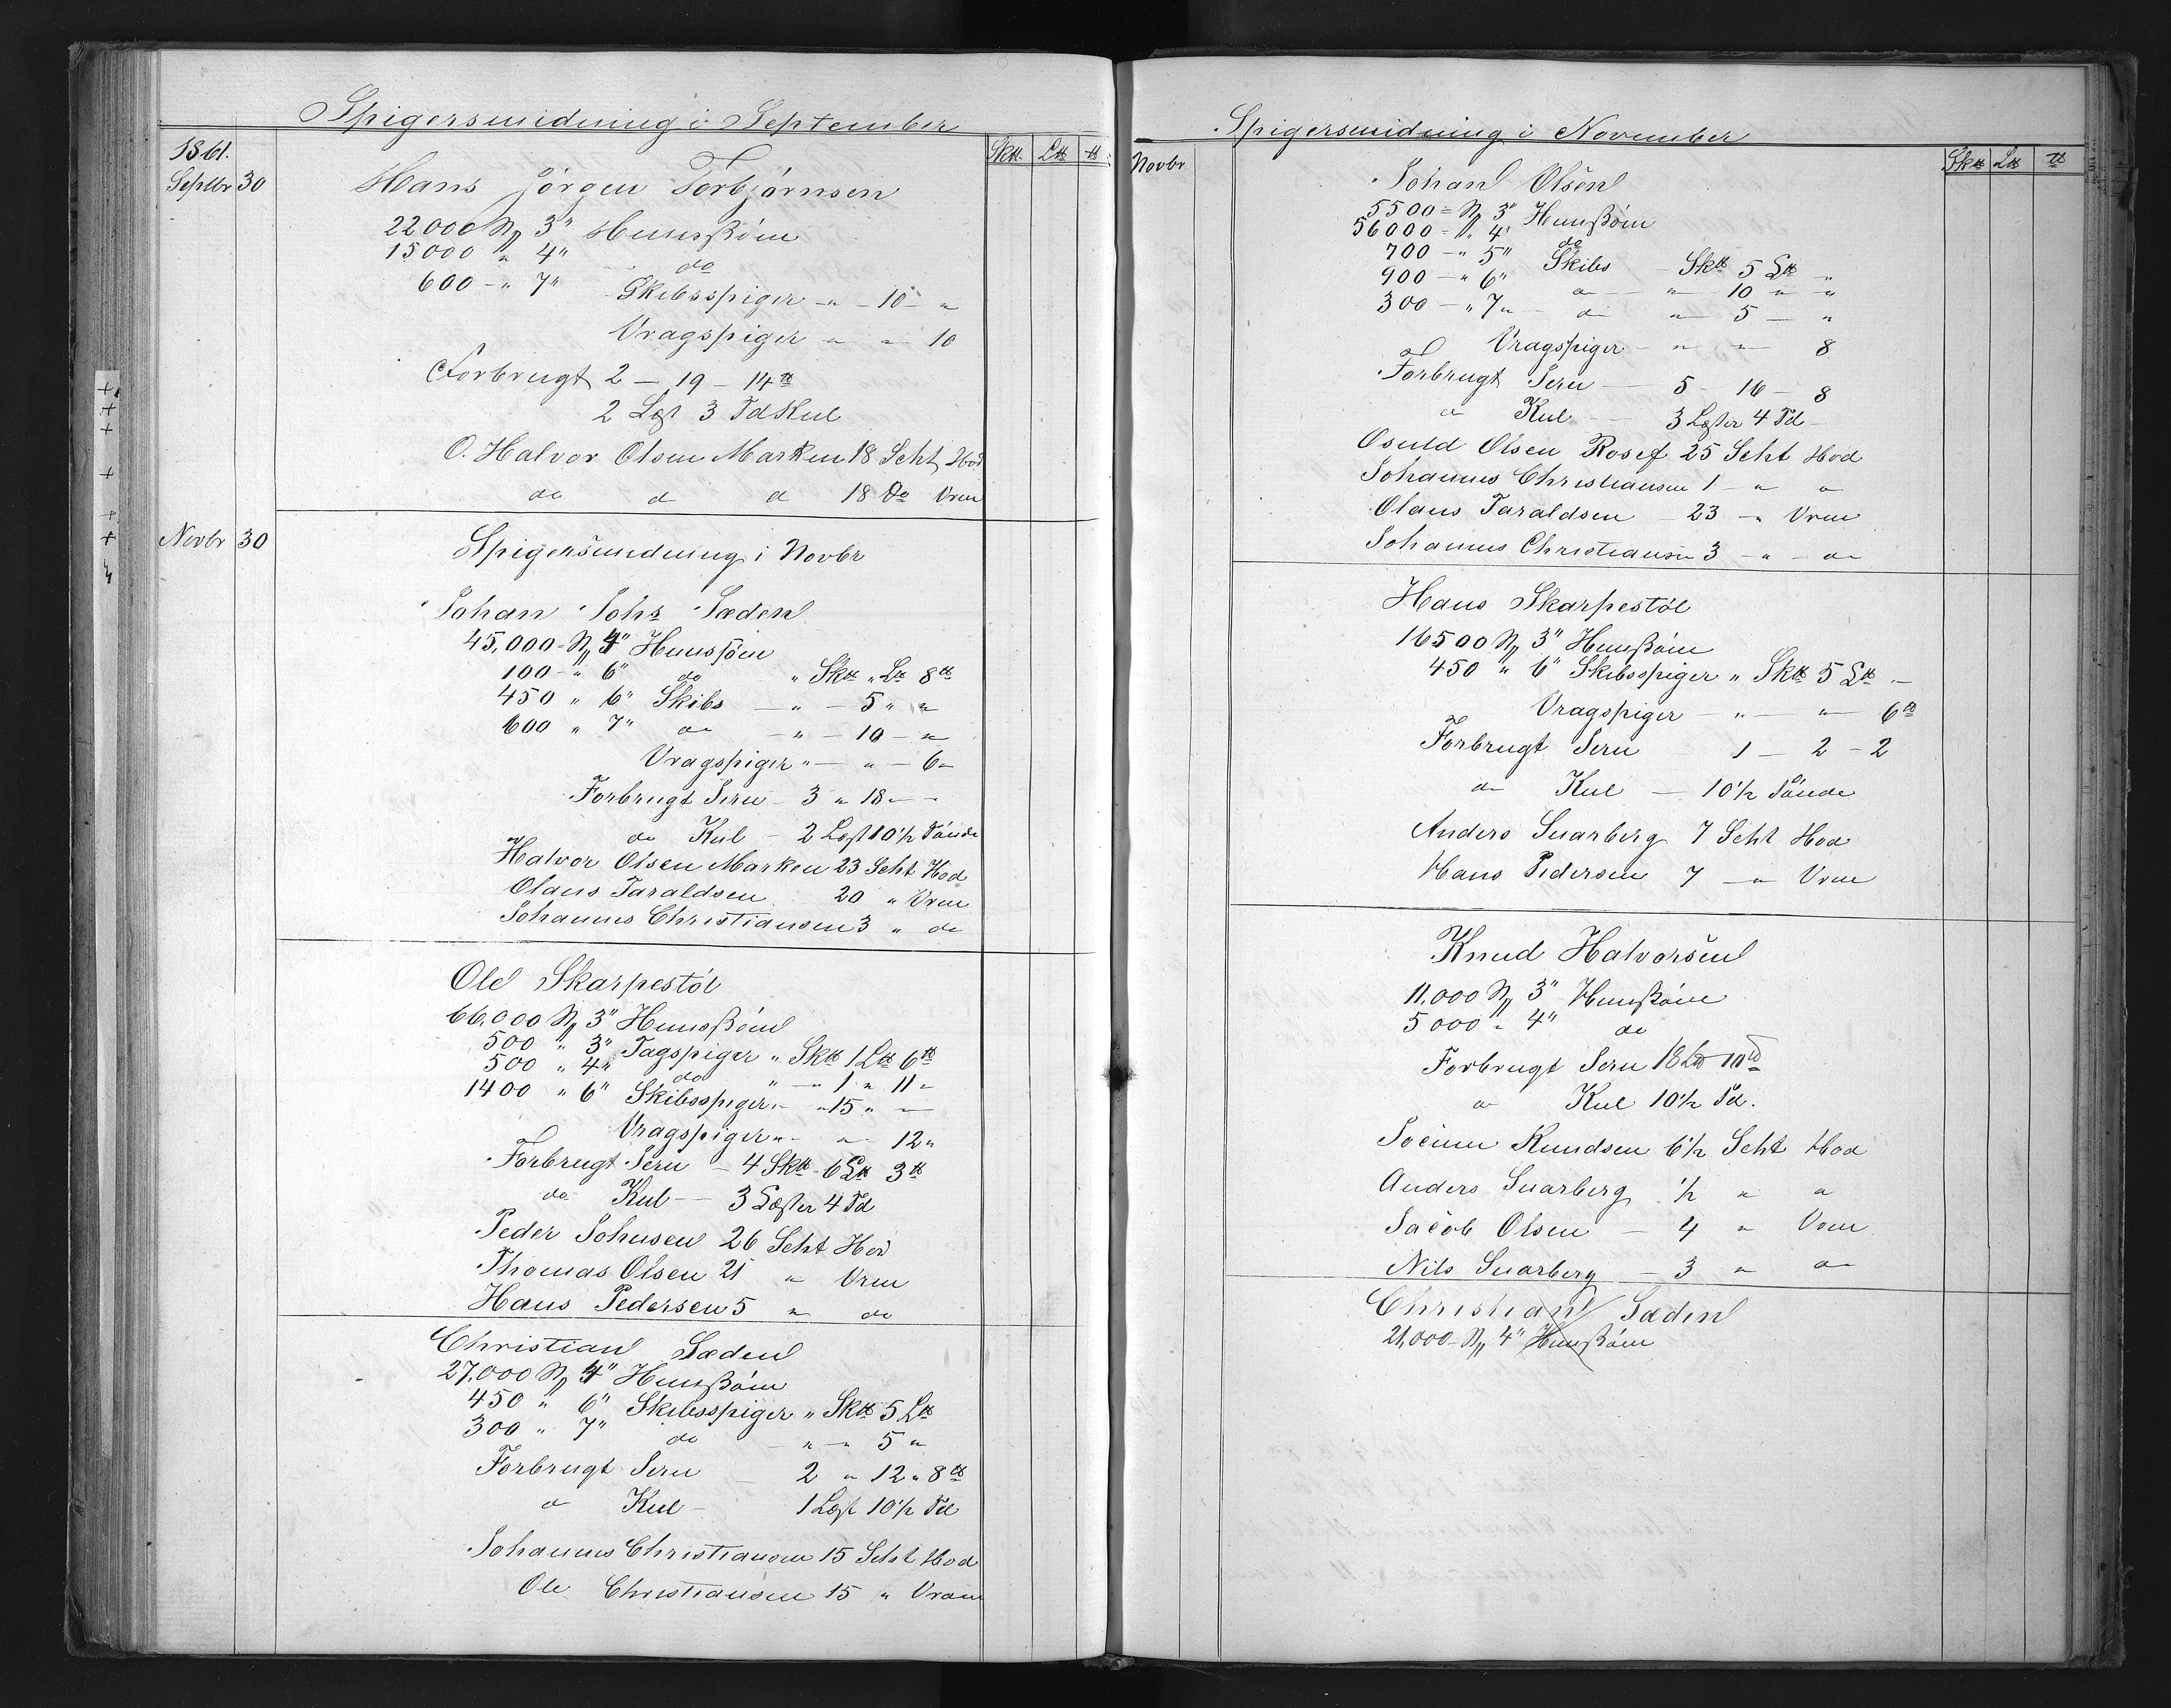 Spigersmidning i September
1861.
Sktt. Ltt tt
Septbr 30
Hans Jörgen Torbjörnsen
22000 N 3" Hunssöm
15000 " 4" do
600 - " 7" Skibsspiger - " - 10 - "
Vragspiger " - 10
Forbrugt 2 - 19 - 14 tt
2 Læst 3 Td Kul
O. Halvor Olsen Marken 18 Scht Hod
do d d 18 Do Vrm
Novbr 30
Spigersmidning i Novbr
Johan Johs Sæden
45,000 - N 4" Hunssöm
100 - " 6" do " Sktt " Ltt 8 tt
450 " 6" Skibs - " - 5 " "
600 " 7" do - " - 10 - "
Vragspiger " - " - 6 "
Forbrugt Jern - 3 " 18 " -
do Kul - 2 Læst 10 1/2 Tönde
Halvor Olsen Marken 23 Scht Hod
Olaus Taraldsen 20 " Vrm
Johannes Christiansen 3 " do
Ole Skarpestöl
66,000 N 3" Hunssöm
500 " 3" Tagspiger " Sktt 1 Ltt 6 tt
500 " 4" do " - " 1 " 11 "
1400 " 6" Skibsspiger " - " 15 " -
Vragspiger " - " - 12 "
Forbrugt Jern - 4 Sktt 6 Ltt 3 tt
do Kul - 3 Læster 4 Td
Peder Johnsen 26 Scht Hod
Thomas Olsen 21 " Vrm
Hans Pedersen 5 " do
Christian Sæden
27,000 N 4" Hunssöm
450 " 6" Skibsspiger " Sktt 5 Ltt
300 " 7" do " - " 5 "
Forbrugt Jern - 2 " 12 " 8 tt
d Kul - 1 Læst 10 1/2 Td
Johannes Christiansen 15 Scht Hod
Ole Christiansen 15 " Vram
Spigersmidning i November
Novbr
Sktt Ltt tt
Johan Olsen
5500 = N 3" Hunssöm
56000 - " 4" do
700 - " 5" Skibs - Sktt 5 Ltt "
900 - " 6" d - " 10 " "
300 - " 7 " - d " 5 - "
Vragspiger - " - 8
Forbrugt Jern - 5 - 16 - 8
d Kul - 3 Læster 4 Td -
Osuld Olsen Rosef 25 Scht Hod
Johannes Christiansen 1 - " d
Olaus Taraldsen - 23 - " Vrm
Johannes Christiansen 3 - " - do
Hans Skarpestöl
16500 N 3" Hunssöm
450 " 6" Skibsspiger " Sktt 5 Ltt " -
Vragspiger - " - " - 6 tt
Forbrugt Jern - 1 - 2 - 2
do Kul - 10 1/2 Tönde
Anders Snarberg 7 Scht Hod
Hans Pedersen 7 - " Vrm
Knud Halvorsen
11,000 N 3" Hunssöm
5000 " 4" do
Forbrugt Jern 18 Ltt 10 tt
d Kul 10 1/2 Td.
Knudsen 6 1/2 Scht Hod
Anders Snarberg 1/2 " d
Jacob Olsen - 4 " Vrm
Nils Snarberg - 3 " do
Christian Sæden
21,000 - N 4" Hunssöm